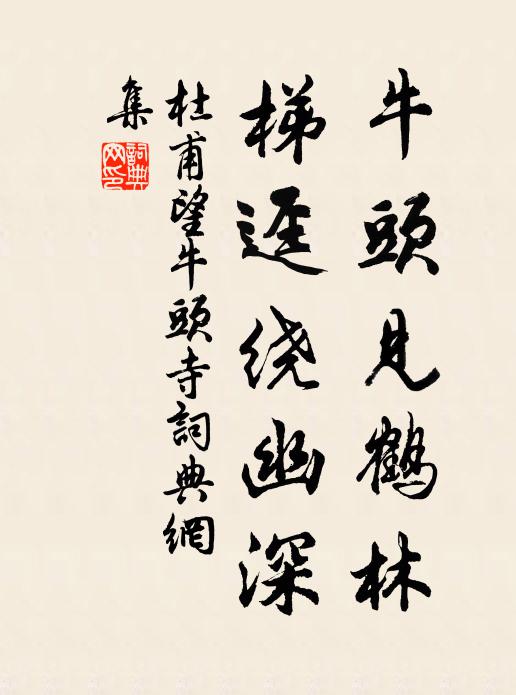 牛頭見鶴林
梯逕绕幽深
杜甫望牛頭寺詞典網
集
詞典
网印